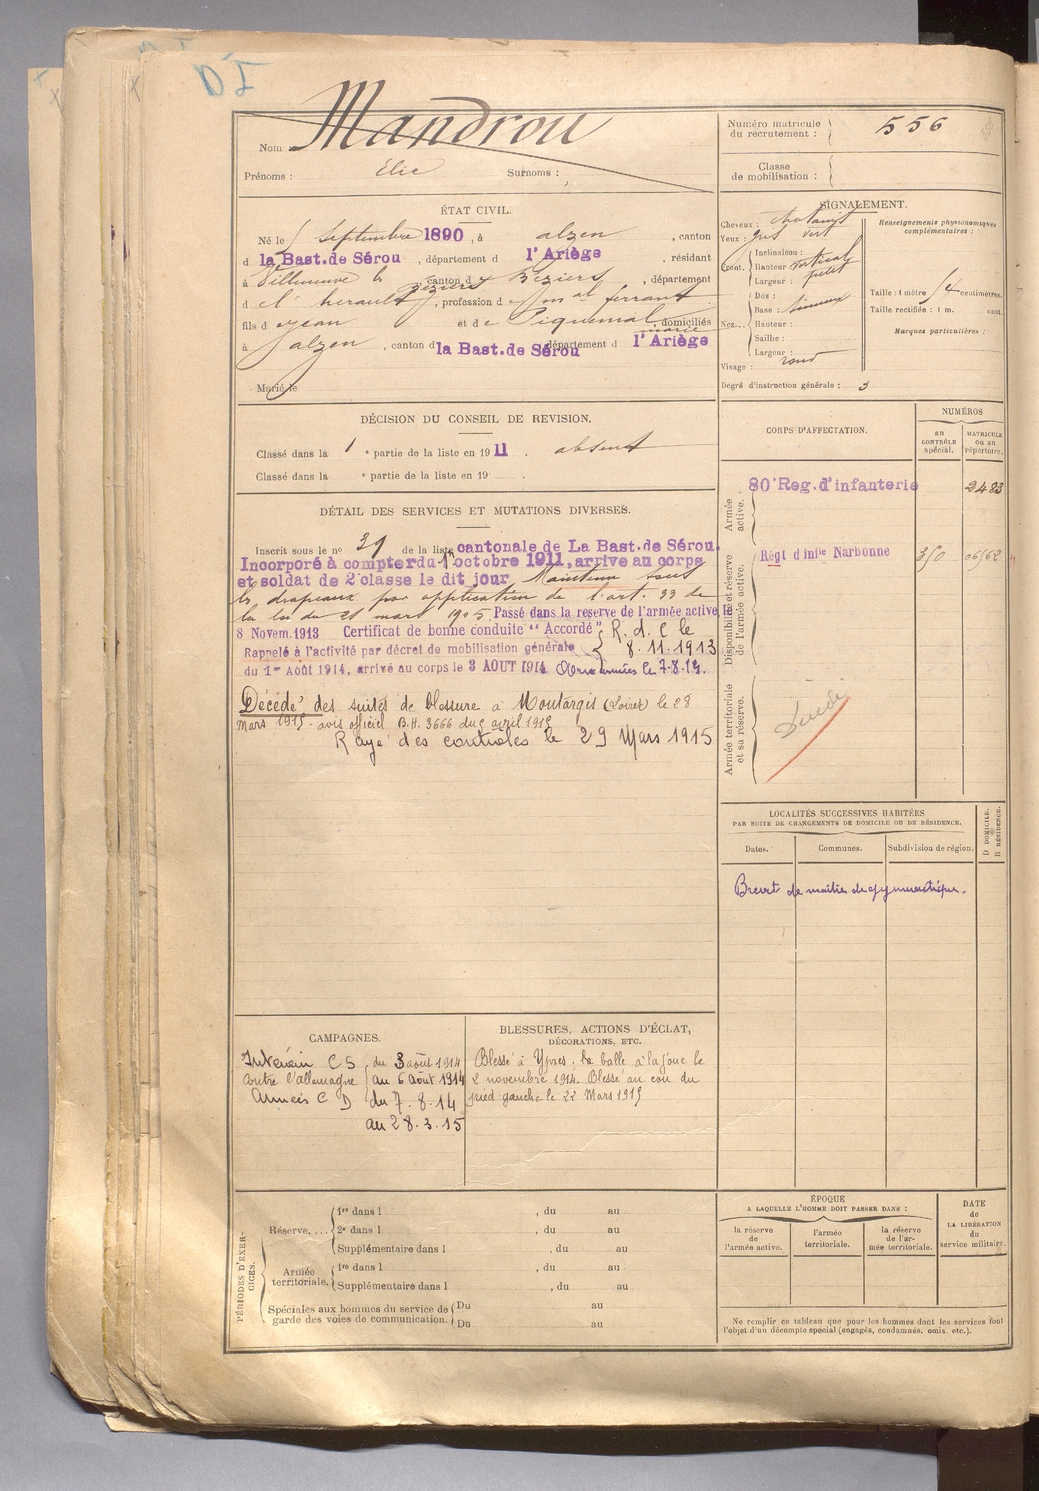 Nom Mandrou
Prénoms : Elie Surnoms :
Numéro matricule
du recrutement : 556
Classe
de mobilisation :
ÉTAT CIVIL.
Né le Septembre 1890, à alzen, canton
d la Bast. de Sérou, département d l'Ariège, résidant
à Villeneuve lès Béziers, canton d Béziers, département
d e l'hérault, profession d ferrant
fils d e Jean et d e Piquemal, domiciliés
à alzen, canton d la Bast. de Sérou département d l'Ariège
Marié le
SIGNALEMENT.
Cheveux :
Yeux : gris vert
Front. Inclinaison : vertical
Hauteur
Largeur : petit
Nez... Dos :
Base :
Hauteur :
Saillie :
Largeur :
Visage : rond
Renseignements physionomiques
complémentaires :
Taille : 1 mètre centimètres.
Taille rectifiée : 1 m. cent.
Marques particulières :
Degré d'instruction générale : 3
DÉCISION DU CONSEIL DE REVISION.
Classé dans la 1 e partie de la liste en 1911. absent
Classé dans la e partie de la liste en 19 .
DÉTAIL DES SERVICES ET MUTATIONS DIVERSES.
Inscrit sous le n° 39 de la liste cantonale de La Bast. de Sérou.
Incorporé à compter du 1er octobre 1911, arrive au corps
et soldat de 2e classe le dit jour. Maintenu sous
les drapeaux par application de l'art. 33 de
la loi du 21 mars 1905. Passé dans la reserve de l'armée active le
8 Novem. 1913 Certificat de bonne conduite "Accordé" R. d. C le
8.11.1913
Rappelé à l'activité par décret de mobilisation générale
du 1er Août 1914, arrivé au corps le 3 AOUT 1914 Aux armées le 7.8.14.
Décédé des suites de blessure à Montargis (Loiret) le 28
Mars 1915 - avis officiel B.H. 3666 du 5 avril 1915
Rayé des contrôles le 29 Mars 1915
CORPS D'AFFECTATION.
NUMÉROS
AU
CONTRÔLE
spécial.
MATRICULE
OU AU
répertoire.
Armée
active.
80e Reg. d'infanterie 2483
Disponibilité et réserve
de l'armée active.
Régt d'infie Narbonne 350 06162
Armée territoriale
et sa réserve.
Décédé
LOCALITÉS SUCCESSIVES HABITÉES
PAR SUITE DE CHANGEMENTS DE DOMICILE OU DE RÉSIDENCE.
Dates. Communes. Subdivision de région. D DOMICILE. R RÉSIDENCE.
Brevet de maître de gymnastique.
CAMPAGNES.
Intérieur C S du 3 août 1914
Contre l'allemagne au 6 Août 1914
Armées C D du 7.8.14
au 28.3.15
BLESSURES, ACTIONS D'ÉCLAT,
DÉCORATIONS, ETC.
Blessé à Ypres : balle à la joue le
2 novembre 1914. Blessé au cou du
pied gauche le 22 Mars 1915
PÉRIODES D'EXERCICES.
Réserve.... 1re dans l , du au
2e dans l , du au
Supplémentaire dans l , du au
Armée
territoriale. 1re dans l , du au
Supplémentaire dans l , du au
Spéciales aux hommes du service de
garde des voies de communication. Du au
Du au
ÉPOQUE
A LAQUELLE L'HOMME DOIT PASSER DANS :
la réserve
de
l'armée active.
l'armée
territoriale.
la réserve
de l'ar-
mée territoriale.
DATE
de
LA LIBÉRATION
du
service militaire.
Ne remplir ce tableau que pour les hommes dont les services font
l'objet d'un décompte spécial (engagés, condamnés, omis, etc.).